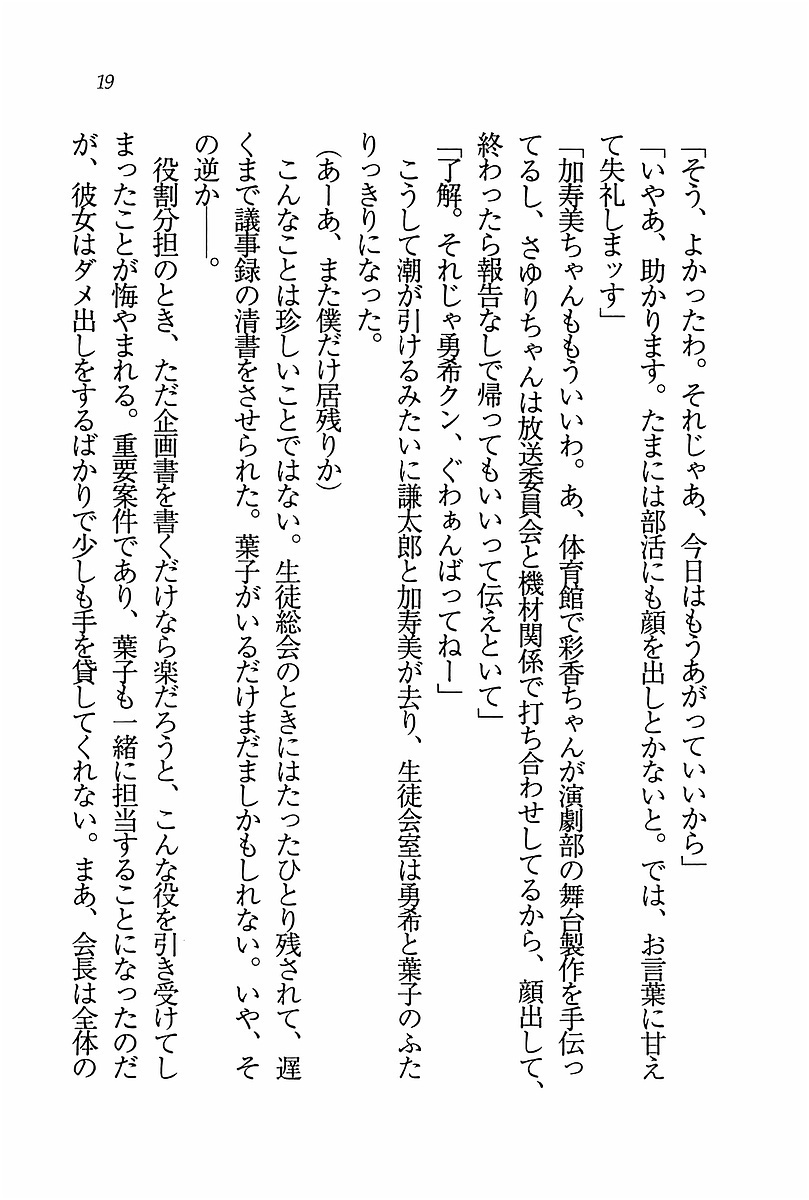 19
「そう、よかったわ。それじゃあ、今日はもうあがっていいから」
「いやあ、助かります。たまには部活にも顔を出しとかないと。では、お言葉に甘え
て失礼しまッす」
「加寿美ちゃんももういいわ。あ、体育館で彩香ちゃんが演劇部の舞台製作を手伝っ
てるし、さゆりちゃんは放送委員会と機材関係で打ち合わせしてるから、顔出して、
終わったら報告なしで帰ってもいいって伝えといて」
「了解。それじゃ勇希クン、ぐわぁんばってねー」
こうして潮が引けるみたいに謙太郎と加寿美が去り、生徒会室は勇希と葉子のふた
りっきりになった。
（あーあ、また僕だけ居残りか）
こんなことは珍しいことではない。生徒総会のときにはたったひとり残されて、遅
くまで議事録の清書をさせられた。葉子がいるだけまだましかもしれない。いや、そ
の逆か――。
役割分担のとき、ただ企画書を書くだけなら楽だろうと、こんな役を引き受けてし
まったことが悔やまれる。重要案件であり、葉子も一緒に担当することになったのだ
が、彼女はダメ出しをするばかりで少しも手を貸してくれない。まあ、会長は全体の